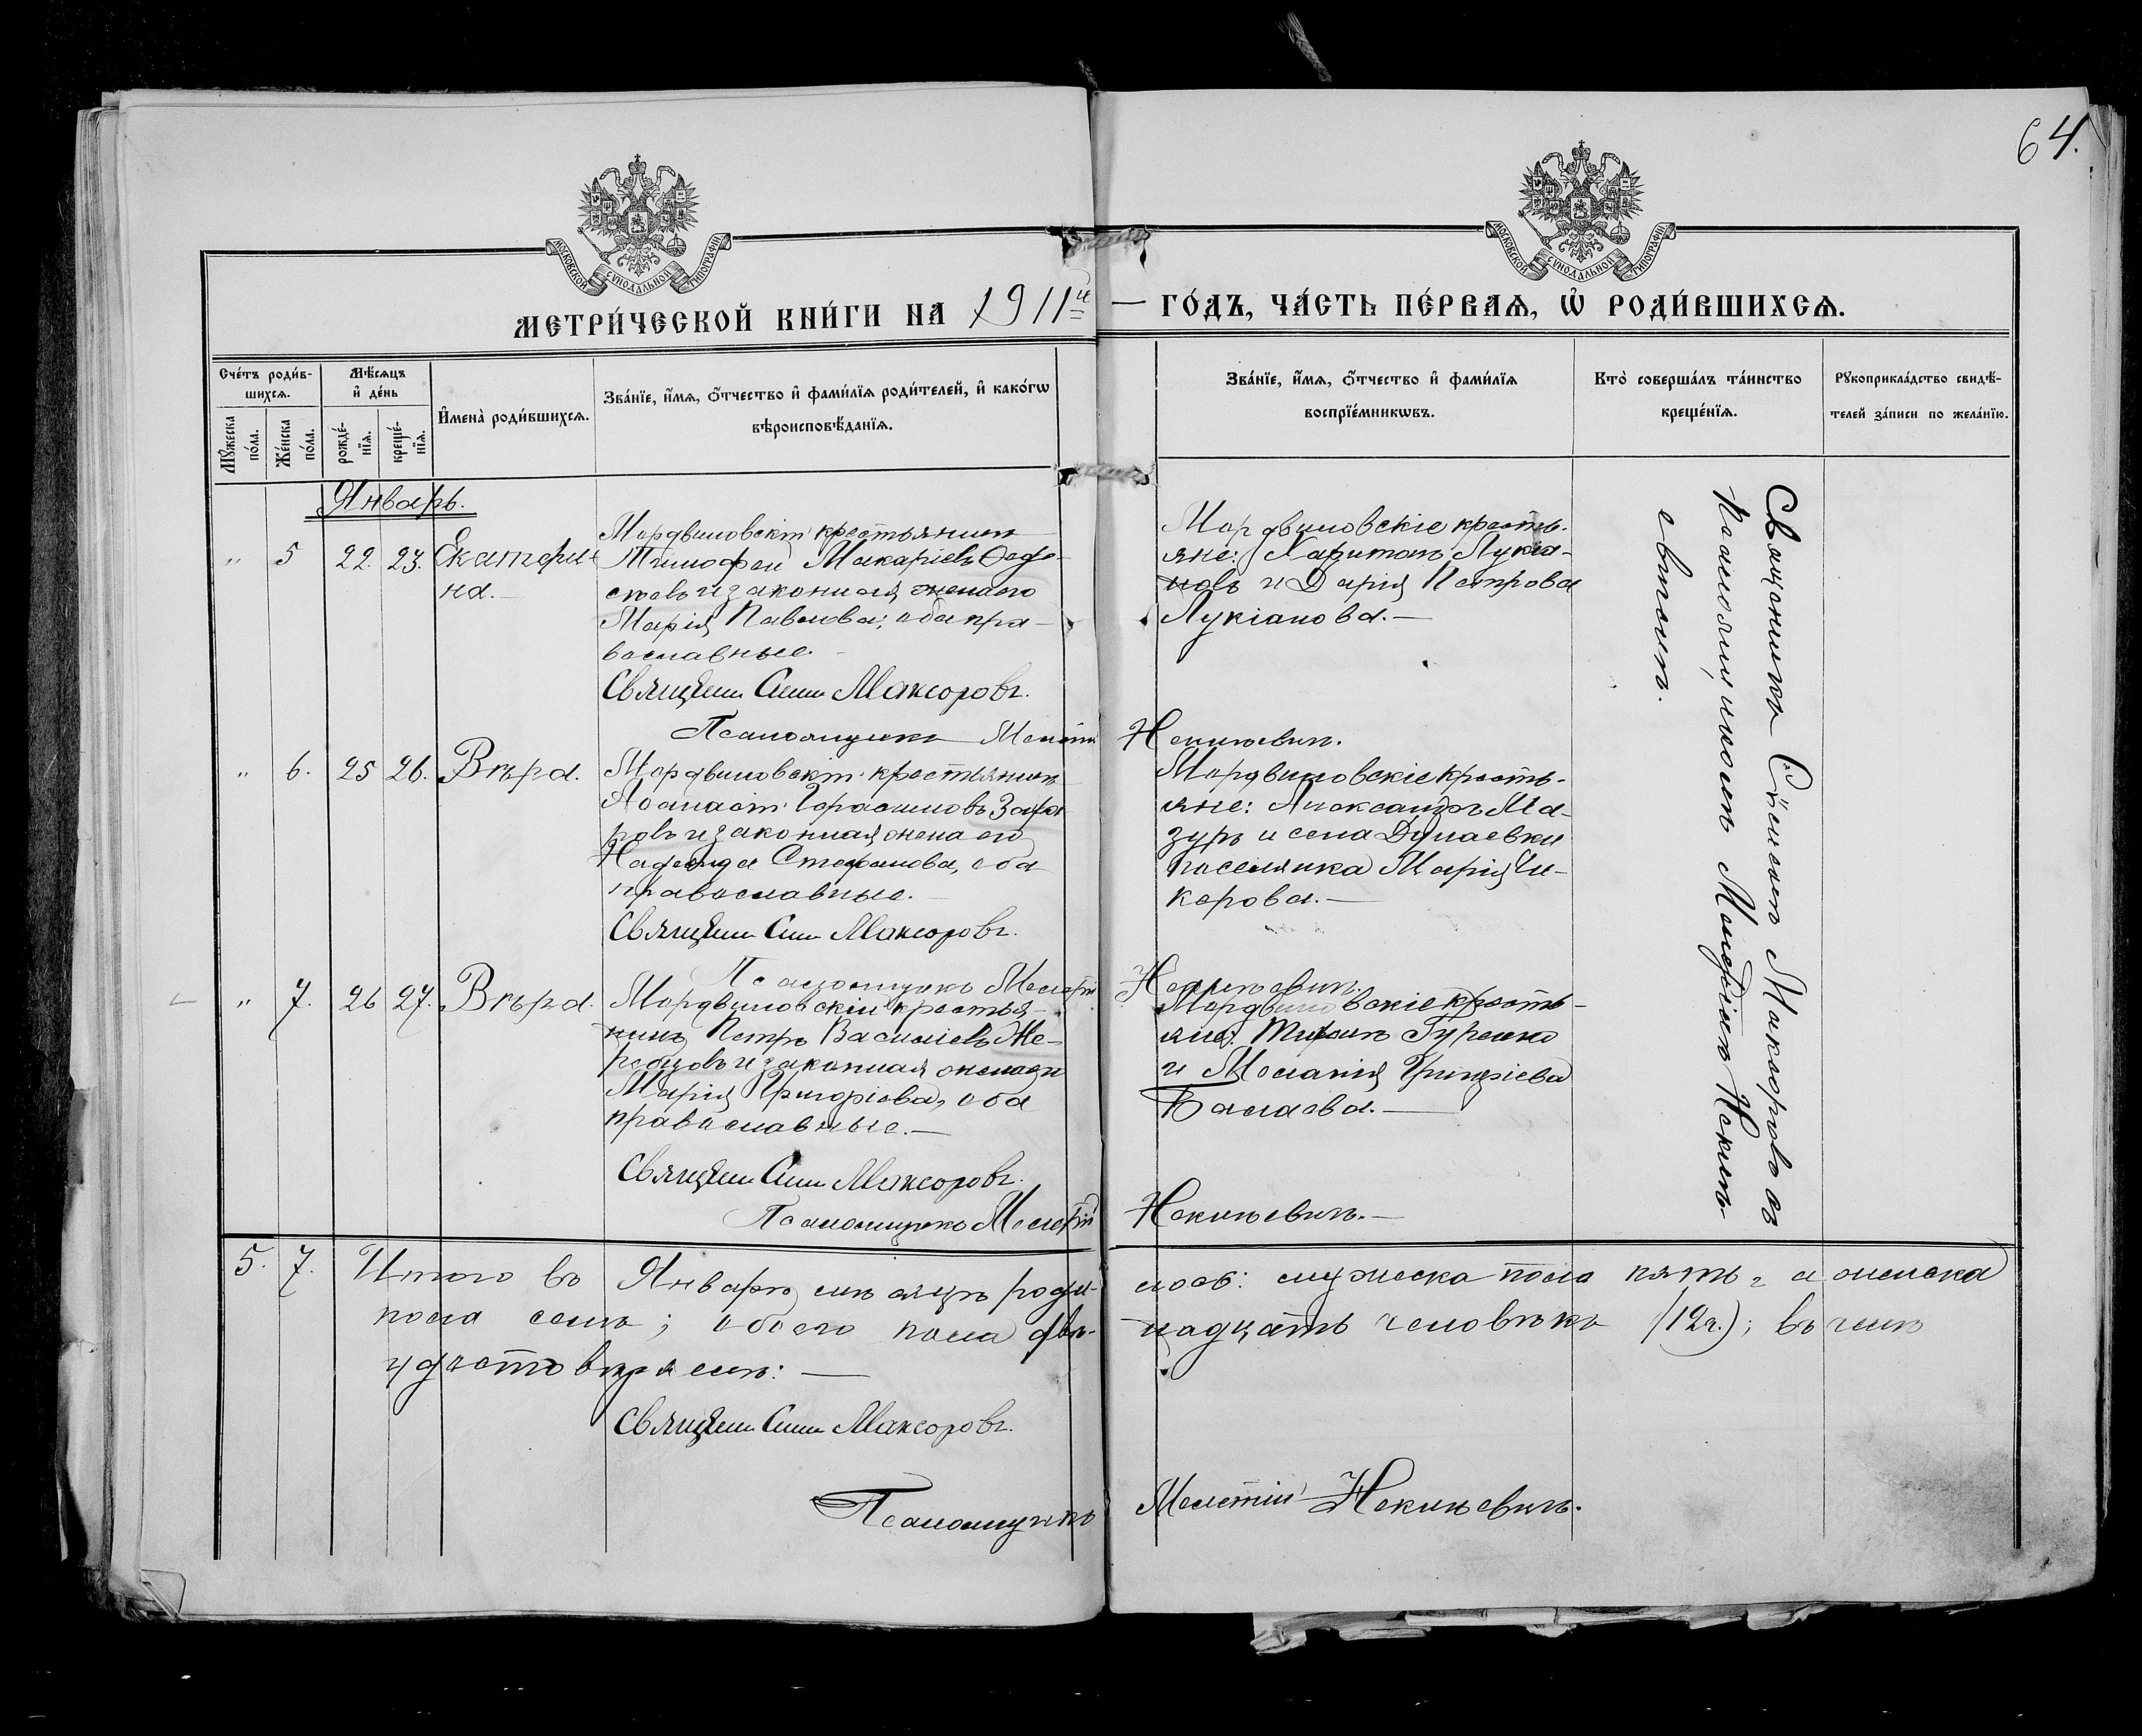 64.
МОСКОВСКОЙ СѴНОДАЛЬНОЙ ТИПОГРАФІИ
МОСКОВСКОЙ СѴНОДАЛЬНОЙ ТИПОГРАФІИ
МЕТРИ́ЧЕСКОЙ КНИ́ГИ НА 1911й — ГО́ДЪ, ЧА́СТЬ ПЕ́РВАѦ, Ѡ҆ РОДИ́ВШИХСѦ.
Сче́тъ роди́в-
шихсѧ.
Мꙋ́жеска по́ла.
Же́нска по́ла.
Мѣ́сѧцъ
и҆ де́нь
рожде́-
нїѧ.
креще́-
нїѧ.
И҆мена̀ роди́вшихсѧ.
Зва́нїе, и҆́мѧ, ѻ҆́тчество и҆ фами́лїѧ роди́телей, и҆ како́гѡ
вѣроисповѣ́данїѧ.
Зва́нїе, и҆́мѧ, ѻ҆́тчество и҆ фами́лїѧ
воспрїе́мникѡвъ.
Кто̀ соверша́лъ та́инство
креще́нїѧ.
Рꙋкоприкла́дство свидѣ́-
телей за́писи по жела́нїю.
Январь.
" 5 22. 23. Екатери-
на.
Мордвиновскій крестьянинъ
Тимофей Макаріевъ Ѳедо-
совъ и законная жена его
Марія Павлова; оба пра-
вославные.
Священ. Сим. Макеоровъ.
Псаломщикъ Мелетій Некиневичъ.
Мордвиновскіе кресть-
яне: Харитонъ Лукіа-
новъ и Дарія Петрова
Лукіанова.
" 6. 25 26. Вѣра.
Мордвиновскій крестьянинъ
Аѳанасій Герасимовъ Заха
ровъ и законная жена его
Надежда Стефанова, оба
православные.
Священ. Сим. Макеоровъ.
Псаломщикъ Мелетій Некиневичъ.
Мордвиновскіе кресть-
яне: Александръ Ма-
зуръ и села Дунаевки
поселянка Марія Чи-
керова.
" 7. 26 27. Вѣра.
Мордвиновскій крестья-
нинъ Петръ Василіевъ Же-
ребцовъ и законная жена его
Марія Григоріева, оба
православные.
Священ. Сим. Макеоровъ.
Псаломщикъ Мелетій Некиневичъ.
Мордвиновскіе кресть-
яне: Гуренко
и Меланія Григоріева
Балаева.
Священникъ Сѵмеонъ Макеоровъ съ
псаломщикомъ Мелетіемъ Некине-
вичемъ.
5. 7. Итого въ Январѣ мѣсяцѣ роди- лось: мужеска пола пять, а женска
пола семь; обоего пола две- надцать человѣкъ (12 ч.); въ чемъ
и удостовѣряемъ:
Священ. Сим. Макеоровъ.
Псаломщикъ Мелетій Некиневичъ.